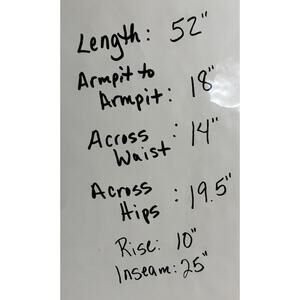 Length: 52"
Armpit to
Armpit: 18"
Across
Waist : 14"
Across
Hips : 19.5"
Rise: 10"
Inseam: 25"